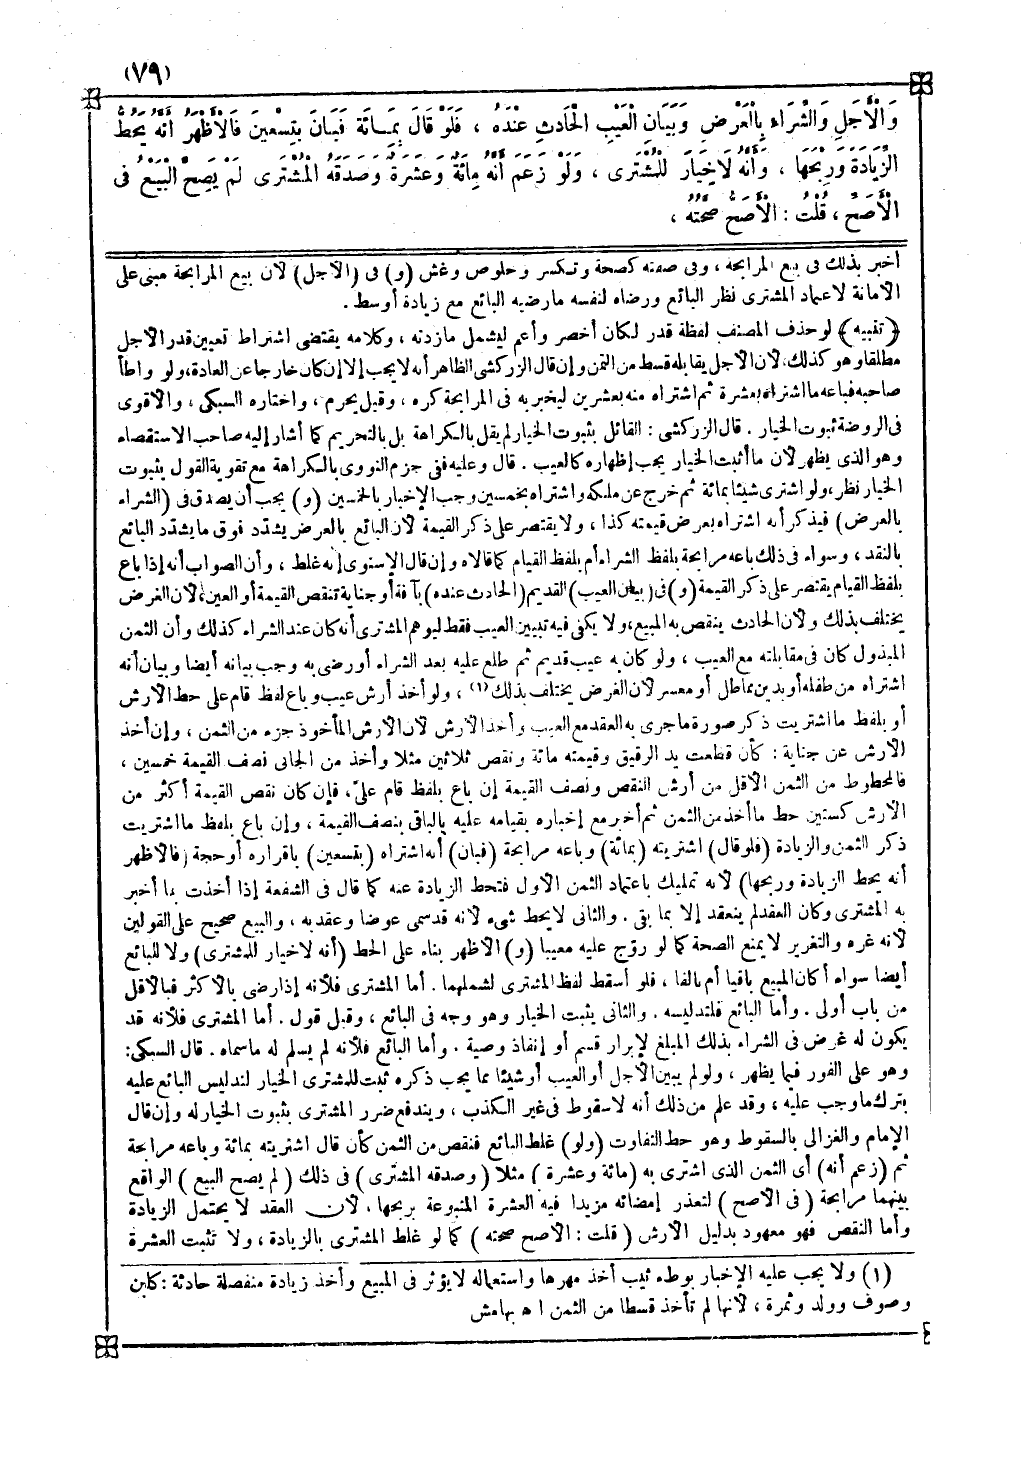 (٧٩)
وَالْأَجَلِ وَالشِّرَاءِ بِالْعَرْضِ وَبَيَانِ الْعَيْبِ الْحَادِثِ عِنْدَهُ ، فَلَوْ قَالَ بِمِائَةٍ فَبَانَ بِتِسْعِينَ فَالْأَظْهَرُ أَنَّهُ يَحُطُّ
الزِّيَادَةَ وَرِبْحَهَا ، وَأَنَّهُ لَاخِيَارَ لِلْمُشْتَرِى ، وَلَوْ زَعَمَ أَنَّهُ مِائَةٌ وَعَشْرَةٌ وَصَدَّقَهُ الْمُشْتَرِى لَمْ يَصِحَّ الْبَيْعُ فِى
الْأَصَحِّ ، قُلْتُ : الْأَصَحُّ صِحَّتُهُ ،
أخبر بذلك فى بيع المرابحة ، وفى صفته كصحة وتكسر وخلوص وغش (و) فى (الأجل) لأن بيع المرابحة مبنى على
الأمانة لاعتماد المشترى نظر البائع ورضاه لنفسه مارضيه البائع مع زيادة أوسط .
﴿ تنبيه ﴾ لو حذف المصنف لفظة قدر لكان أخصر وأعم ليشمل مازدته ، وكلامه يقتضى اشتراط تعيين قدر الأجل
مطلقا وهو كذلك، لأن الأجل يقابله قسط من الثمن وإن قال الزركشى الظاهر أنه لايجب إلا إن كان خارجا عن العادة، ولو واطأ
صاحبه فباعه ما اشتراه بعشرة ثم اشتراه منه بعشرين ليخبر به فى المرابحة كره ، وقيل يحرم ، واختاره السبكى ، والأقوى
فى الروضة ثبوت الخيار . قال الزركشى : القائل بثبوت الخيار لم يقل بالكراهة بل بالتحريم كما أشار إليه صاحب الاستقصاء
وهو الذى يظهر لأن ما أثبت الخيار يجب إظهاره كالعيب . قال وعليه ففى جزم النووى بالكراهة مع تقوية القول بثبوت
الخيار نظر، ولو اشترى شيئا بمائة ثم خرج عن ملكه واشتراه بخمسين وجب الإخبار بالخمسين (و) يجب أن يصدق فى (الشراء
بالعرض) فيذكر أنه اشتراه بعرض قيمته كذا ، ولا يقتصر على ذكر القيمة لأن البائع بالعرض يشدد فوق ما يشدد البائع
بالنقد ، وسواء فى ذلك باعه مرابحة بلفظ الشراء أم بلفظ القيام كما قالاه وإن قال الإسنوى إنه غلط ، وأن الصواب أنه إذا باع
بلفظ القيام يقتصر على ذكر القيمة (و) فى (بيان العيب) القديم (الحادث عنده) بآفة أو جناية تنقص القيمة أو العين؛ لأن الغرض
يختلف بذلك ولأن الحادث ينقص به المبيع، ولا يكفى فيه تبيين العيب فقط ليوهم المشترى أنه كان عند الشراء كذلك وأن الثمن
المبذول كان فى مقابلته مع العيب ، ولو كان به عيب قديم ثم طلع عليه بعد الشراء أورضى به وجب بيانه أيضا وبيان أنه
اشتراه من طفله أو بدين مماطل أو معسر لأن الغرض يختلف بذلك (١) ، ولو أخذ أرش عيب وباع لفظ قام على حط الأرش
أو بلفظ ما اشتريت ذكر صورة ماجرى به العقد مع العيب وأخذ الأرش لأن الأرش المأخوذ جزء من الثمن ، وإن أخذ
الأرش عن جناية : كأن قطعت يد الرقيق وقيمته مائة ونقص ثلاثين مثلا وأخذ من الجانى نصف القيمة خمسين ،
فالمحطوط من الثمن الأقل من أرش النقص ونصف القيمة إن باع بلفظ قام علىّ، فإن كان نقص القيمة أكثر من
الأرش كستين حط ما أخذ من الثمن ثم أخبر مع إخباره بقيامه عليه بالباقى بنصف القيمة ، وإن باع بلفظ ما اشتريت
ذكر الثمن والزيادة (فلو قال) اشتريته (بمائة) وباعه مرابحة (فبان) أنه اشتراه (بتسعين) باقراره أو حجة (فالأظهر
أنه يحط الزيادة وربحها) لأنه تمليك باعتماد الثمن الأول فتحط الزيادة عنه كما قال فى الشفعة إذا أخذت بما أخبر
به المشترى وكان العقد لم ينعقد إلا بما بقى . والثانى لايحط شىء لأنه قدسمى عوضا وعقد به ، والبيع صحيح على القولين
لأنه غره والتغرير لايمنع الصحة كما لو روّج عليه معيبا (و) الأظهر بناء على الحط (أنه لاخيار للمشترى) ولا للبائع
أيضا سواء أكان المبيع باقيا أم تالفا ، فلو أسقط لفظ المشترى لشملهما . أما المشترى فلأنه إذا رضى بالأكثر فبالأقل
من باب أولى . وأما البائع فلتدليسه . والثانى يثبت الخيار وهو وجه فى البائع ، وقيل قول . أما المشترى فلأنه قد
يكون له غرض فى الشراء بذلك المبلغ لإبرار قسم أو إنفاذ وصية . وأما البائع فلأنه لم يسلم له ماسماه . قال السبكى:
وهو على الفور فيما يظهر ، ولو لم يبين الأجل أو العيب أو شيئا مما يجب ذكره ثبت للمشترى الخيار لتدليس البائع عليه
بترك ماوجب عليه ، وقد علم من ذلك أنه لاسقوط فى غير الكذب ، ويندفع ضرر المشترى بثبوت الخيار له وإن قال
الإمام والغزالى بالسقوط وهو حط التفاوت (ولو) غلط البائع فنقص من الثمن كأن قال اشتريته بمائة وباعه مرابحة
ثم (زعم أنه) أى الثمن الذى اشترى به (مائة وعشرة) مثلا (وصدقه المشترى) فى ذلك (لم يصح البيع) الواقع
بينهما مرابحة (فى الأصح) لتعذر إمضائه مزيدا فيه العشرة المتبوعة بربحها ، لأن العقد لا يحتمل الزيادة
وأما النقص فهو معهود بدليل الأرش (قلت : الأصح صحته) كما لو غلط المشترى بالزيادة ، ولا تثبت العشرة
(١) ولا يجب عليه الإخبار بوطء ثيب أخذ مهرها واستعماله لايؤثر فى المبيع وأخذ زيادة منفصلة حادثة : كلبن
وصوف وولد وثمرة ، لأنها لم تأخذ قسطا من الثمن اه بهامش